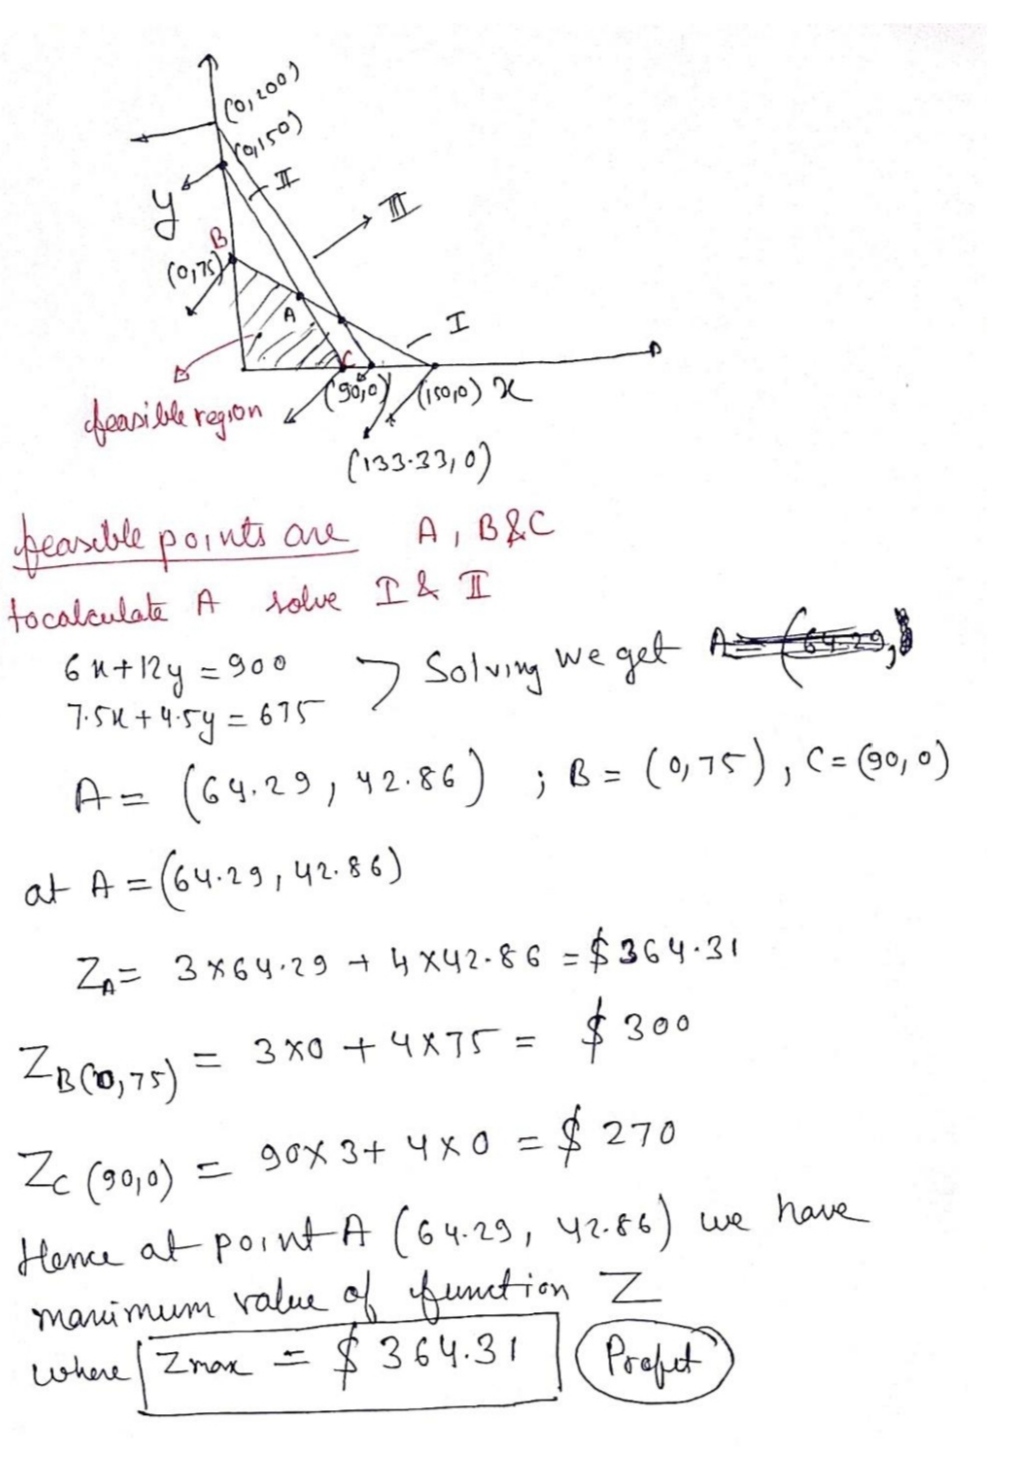 (0,200)
(0,150)
II
III
y
B
(0,75)
A
I
C
(90,0)
(150,0) x
feasible region
(133.33,0)
feasible points are A, B & C
to calculate A solve I & II
6x+12y = 900
7.5x+4.5y = 675
Solving we get A = (64.29,
A = (64.29, 42.86) ; B = (0,75), C = (90,0)
at A = (64.29, 42.86)
Z_A = 3×64.29 + 4×42.86 = $364.31
Z_B(0,75) = 3×0 + 4×75 = $300
Z_C (90,0) = 90×3+ 4×0 = $270
Hence at point A (64.29, 42.86) we have
maximum value of function Z
where Zmax = $364.31 Profit